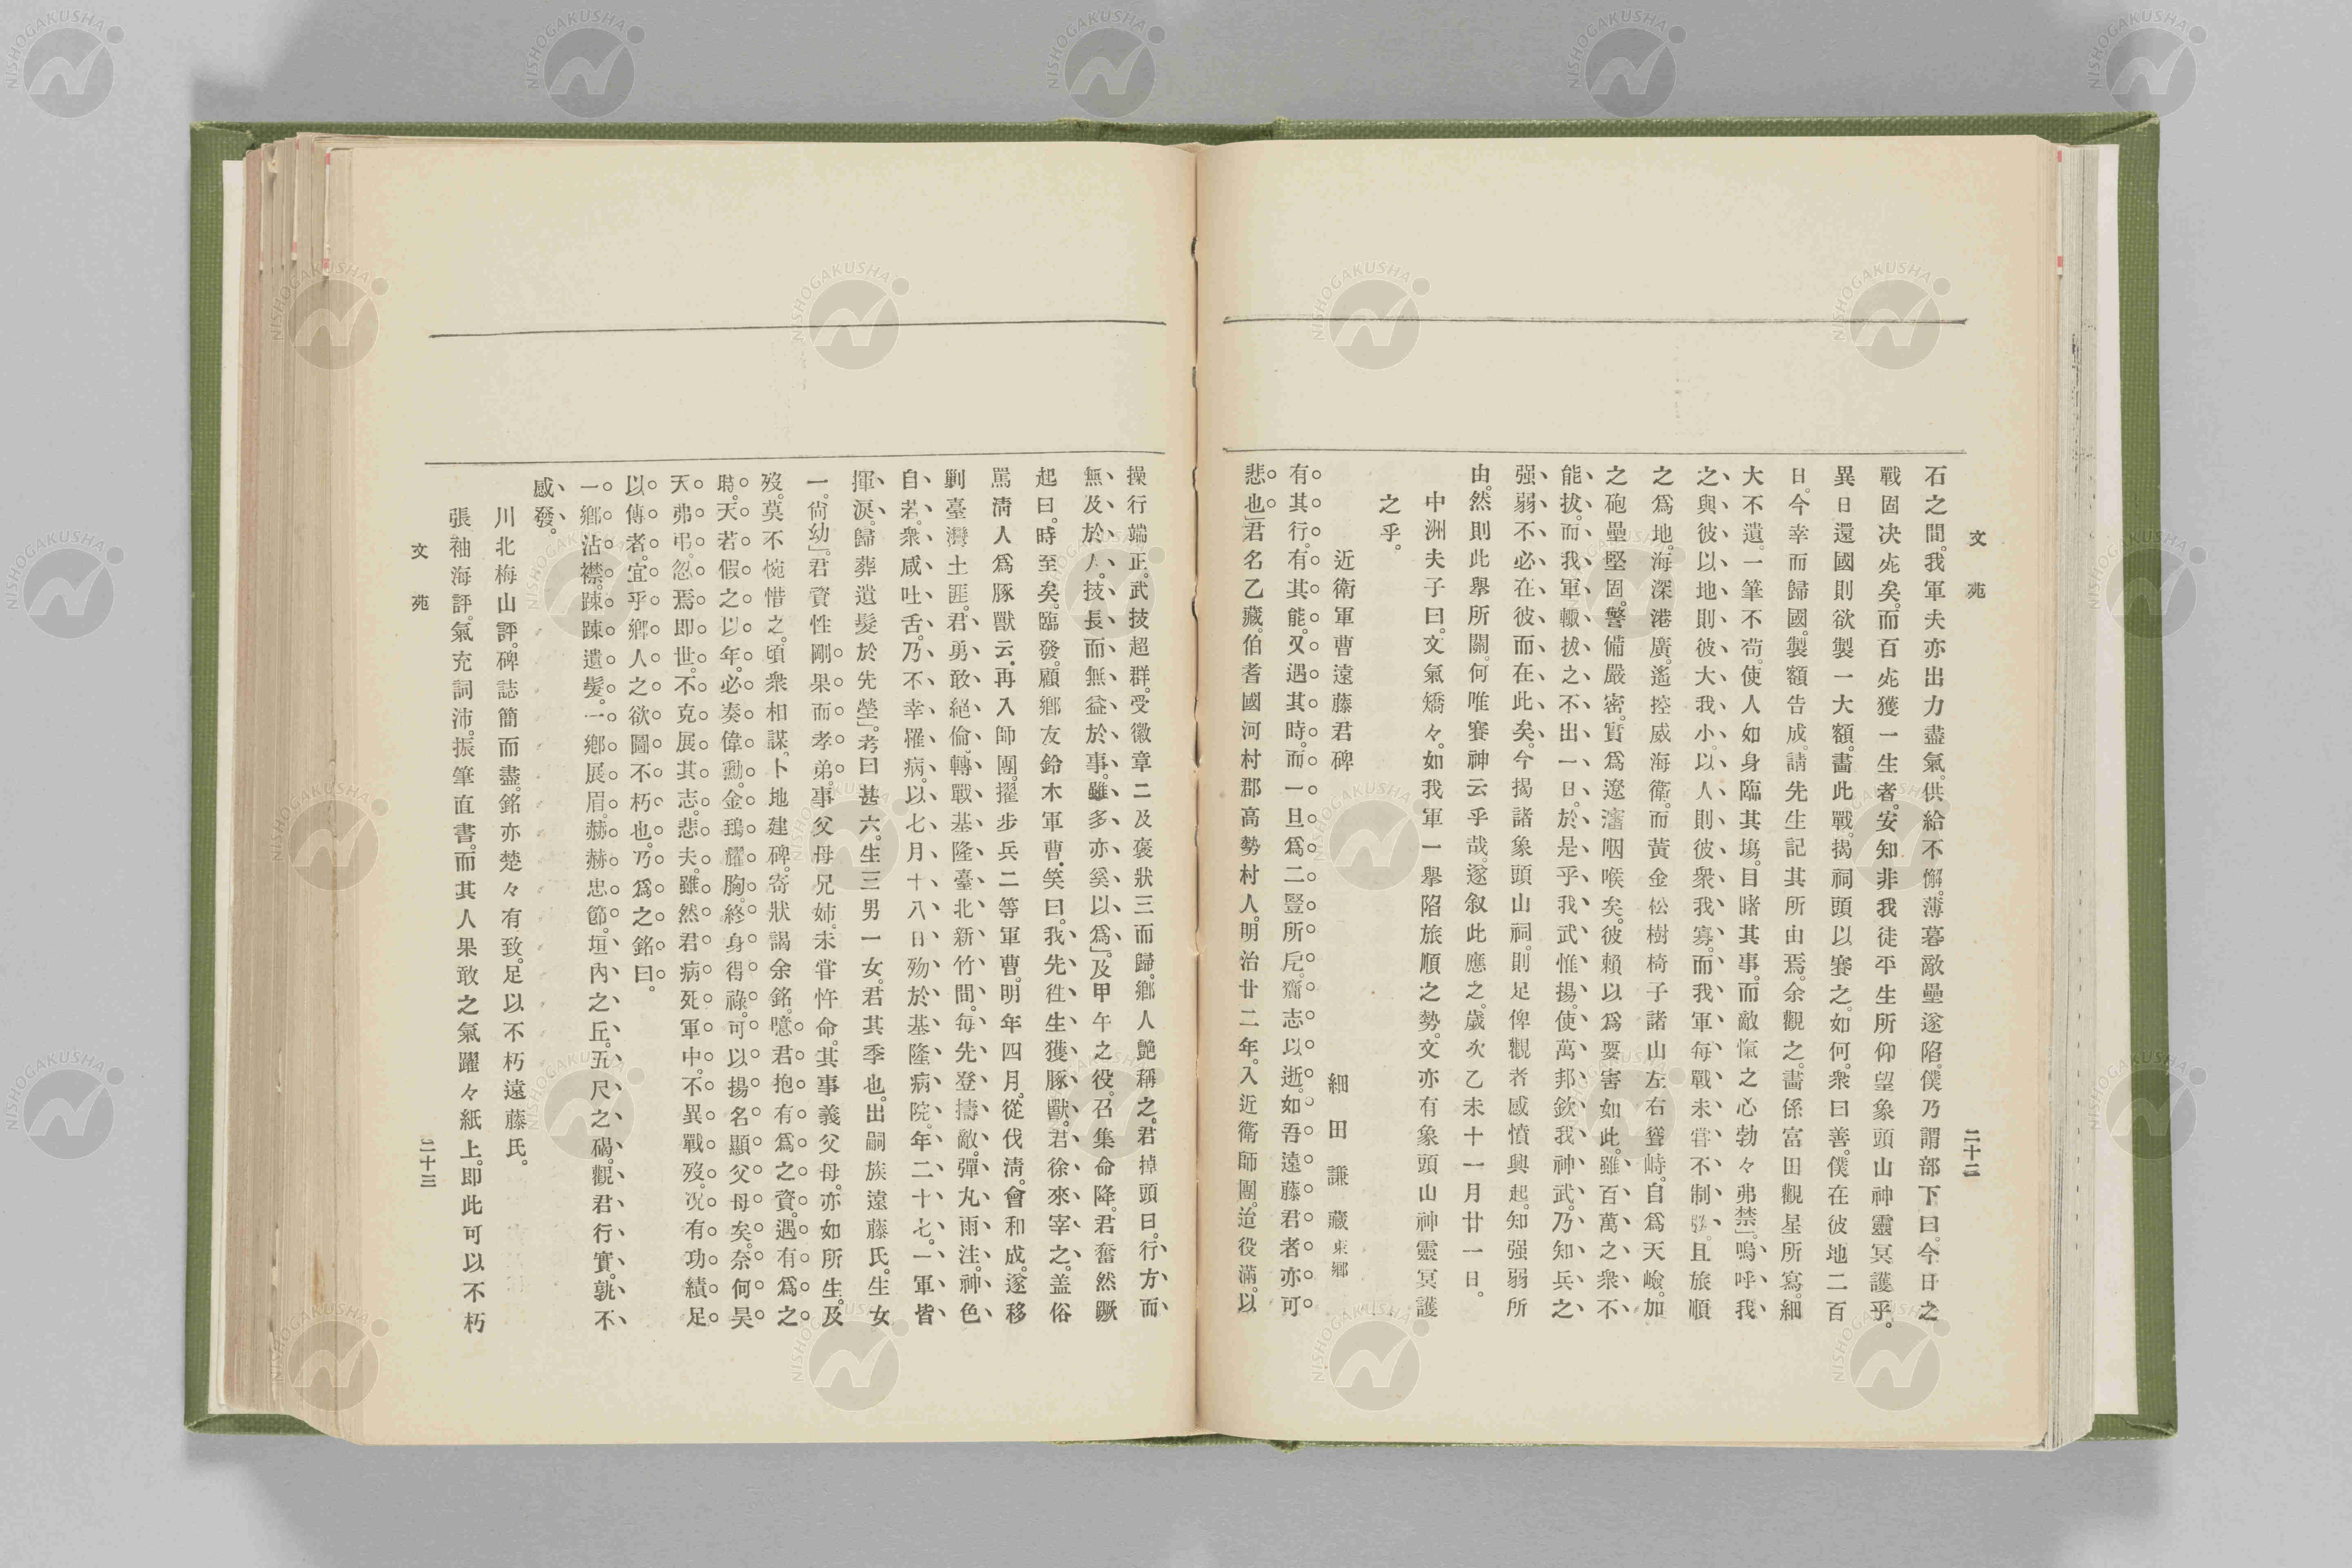 文苑
二十二
石之間。我軍夫亦出力盡氣。供給不懈。薄暮敵壘遂陷。僕乃謂部下曰。今日之
戰固决死矣。而百死獲一生者。安知非我徒平生所仰望象頭山神靈冥護乎。
異日還國則欲製一大額。畵此戰。揭祠頭以賽之。如何。衆曰善。僕在彼地二百
日。今幸而歸國。製額告成。請先生記其所由焉。余觀之。畵係富田觀星所寫。細
大不遺。一筆不苟。使人如身臨其塲。目睹其事。而敵愾之心勃々弗禁」。嗚呼、我
之與彼以地則彼大我小。以人則彼衆我寡。而我軍每戰未甞不制勝。且旅順
之爲地。海深港廣。遙控威海衛。而黃金松樹椅子諸山左右聳峙。自爲天嶮。加
之砲壘堅固。警備嚴密。實爲遼瀋咽喉矣。彼賴以爲要害如此。雖百萬之衆不
能拔。而我軍輙拔之不出一日。於是乎我武惟揚。使萬邦欽我神武。乃知兵之
强弱不必在彼而在此矣。今揭諸象頭山祠。則足俾觀者感憤興起。知强弱所
由。然則此舉所關。何唯賽神云乎哉。遂叙此應之。歲次乙未十一月廿一日。
中洲夫子曰。文氣矯々。如我軍一舉陷旅順之勢。文亦有象頭山神靈冥護
之乎。
近衛軍曹遠藤君碑 細田謙藏東鄉
有其行。有其能。又遇其時。而一旦爲二豎所戹。齎志以逝。如吾遠藤君者亦可
悲也」君名乙藏。伯耆國河村郡高勢村人。明治廿二年。入近衛師團。迨役滿。以
操行端正。武技超群。受徽章二及褒狀三而歸。鄉人艶稱之。君掉頭曰。行方而
無及於人。技長而無益於事。雖多亦奚以爲」。及甲午之役。召集命降。君奮然蹶
起曰。時至矣。臨發。顧鄉友鈴木軍曹。笑曰。我先徃生獲豚獸。君徐來宰之。盖俗
罵淸人爲豚獸云。再入師團。擢步兵二等軍曹。明年四月。從伐淸。會和成。遂移
剿臺灣土匪。君勇敢絕倫。轉戰基隆臺北新竹間。每先登擣敵。彈丸雨注。神色
自若。衆咸吐舌。乃不幸罹病。以七月十八日歿於基隆病院。年二十七。一軍皆
揮淚。歸葬遺髮於先塋」。考曰甚六。生三男一女。君其季也。出嗣族遠藤氏。生女
一。尙幼」。君資性剛果而孝弟。事父母兄姉。未甞忤命。其事義父母。亦如所生。及
歿。莫不惋惜之。頃衆相謀。卜地建碑。寄狀謁余銘。噫君抱有爲之資。遇有爲之
時。天若假之以年。必奏偉勳。金鵄耀胸。終身得祿。可以揚名顯父母矣。奈何昊
天弗弔。忽焉即世。不克展其志。悲夫。雖然君病死軍中。不異戰歿。况有功績足
以傳者。宜乎鄉人之欲圖不朽也。乃爲之銘曰。
一鄉沾襟。踈踈遺髮。一鄉展眉。赫赫忠節。垣內之丘。五尺之碣。觀君行實。孰不
感發。
川北梅山評。碑誌簡而盡。銘亦楚々有致。足以不朽遠藤氏。
張袖海評。氣充詞沛。振筆直書。而其人果敢之氣躍々紙上。即此可以不朽
文苑
二十三